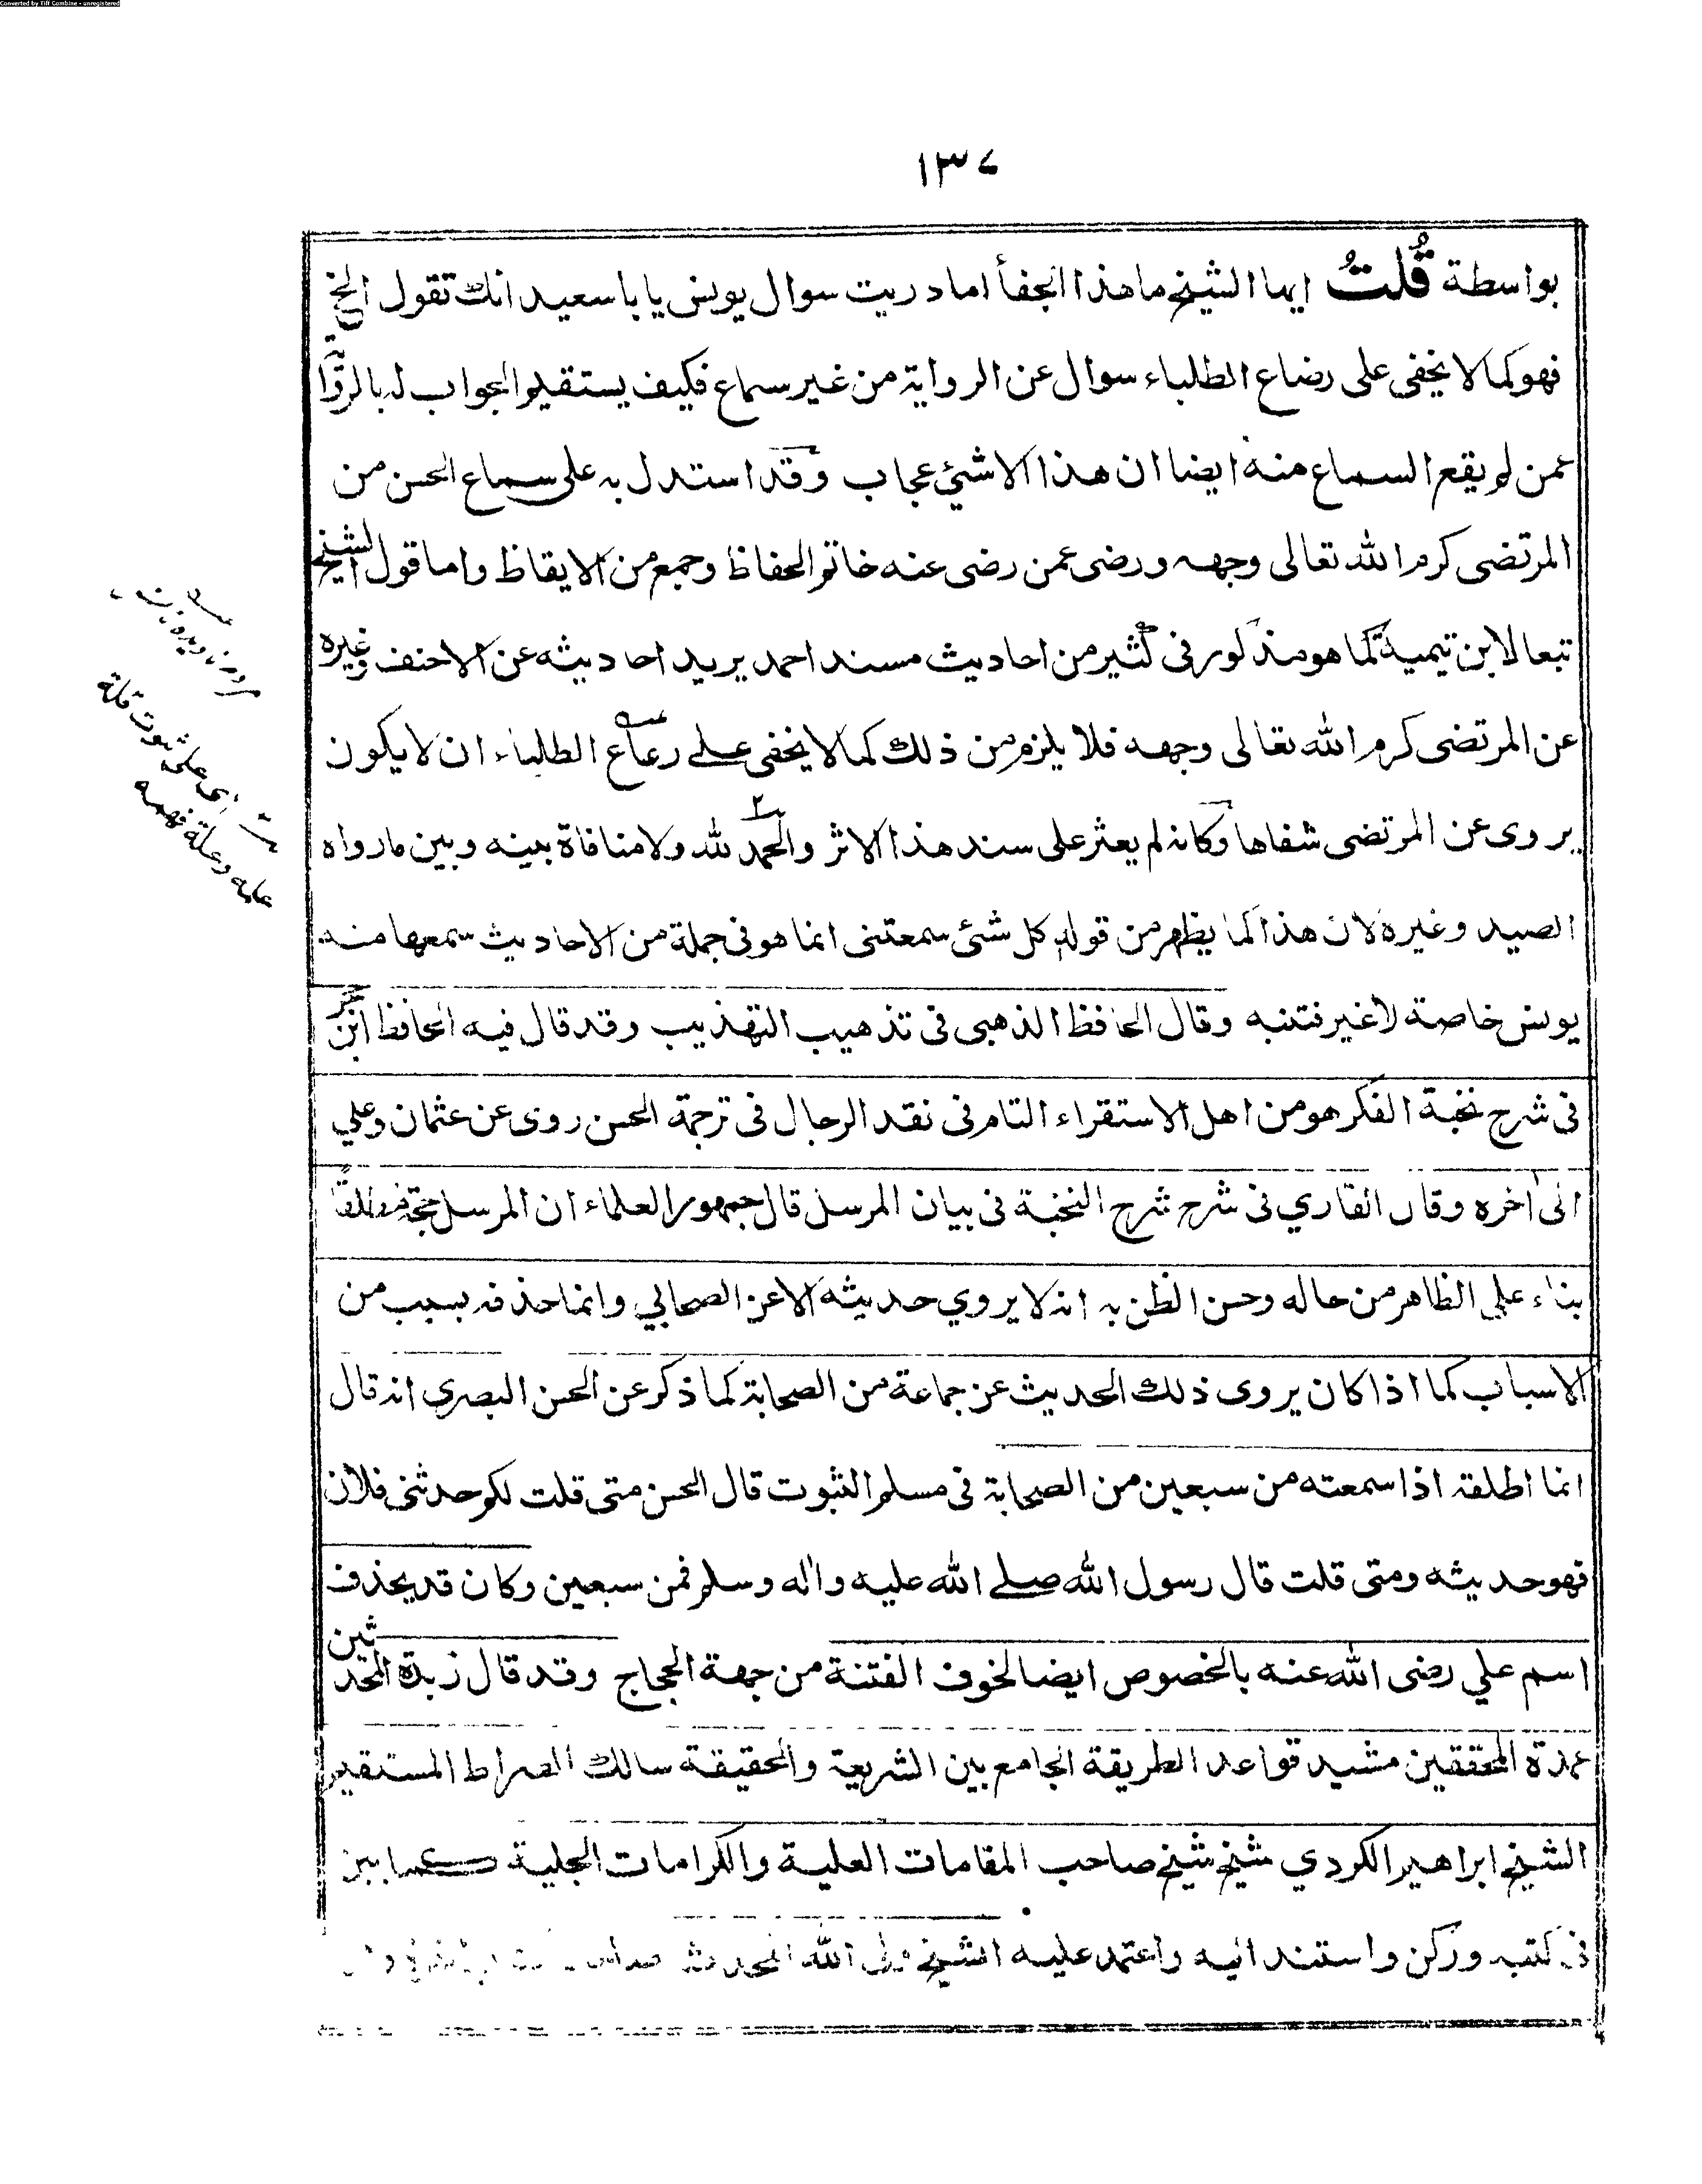 Converted by Tiff Combine - unregistered
١٣٧
بواسطة قُلتُ ايها الشيخ ما هذا الجفأ اما دريت سوال يونس يا با سعيد انك تقول الخ
فهو كما لا يخفى على رضاع الطلباء سوال عن الرواية من غير سماع فكيف يستقيم الجواب له بالرواية
عمن لم يقع السماع منه ايضا ان هذا الا شئ عجاب وقد استدل به على سماع الحسن من
المرتضى كرم الله تعالى وجهه ورضى عمن رضى عنه خاتم الحفاظ وجمع من الايقاظ واما قول الشيخ
تبعا لابن تيمية كما هو مذكور فى كثير من احاديث مسند احمد يريد احاديثه عن الاحنف وغيره
عن المرتضى كرم الله تعالى وجهه فلا يلزم من ذلك كما لا يخفى على رعاع الطلباء ان لا يكون
يروى عن المرتضى شفاها وكانه لم يعثر على سند هذا الاثر والحمد لله ولا منافاة بينه وبين ما رواه
الصيد وغيره لان هذا كما يظهر من قوله كل شئ سمعتنى انما هو فى جملة من الاحاديث سمعها منه
يونس خاصة لا غير فتنبه وقال الحافظ الذهبى فى تذهيب التهذيب وقد قال فيه الحافظ ابن حجر
فى شرح نخبة الفكر هو من اهل الاستقراء التام فى نقد الرجال فى ترجمة الحسن روى عن عثمان وعلي
الى اخره وقال القاري فى شرح شرح النخبة فى بيان المرسل قال جمهور العلماء ان المرسل حجة مطلقًا
بناء على الظاهر من حاله وحسن الظن به انه لا يروي حديثه الا عن الصحابي وانما حذفه بسبب من
الاسباب كما اذا كان يروى ذلك الحديث عن جماعة من الصحابة كما ذكر عن الحسن البصرى انه قال
انما اطلقه اذا سمعته من سبعين من الصحابة فى مسلم الثبوت قال الحسن متى قلت لكم حدثنى فلان
فهو حديثه ومتى قلت قال رسول الله صلى الله عليه واله وسلم فمن سبعين وكان قد يحذف
اسم علي رضى الله عنه بالخصوص ايضا لخوف الفتنة من جهة الحجاج وقد قال زبدة المحدثين
عمدة المحققين مشيد قواعد الطريقة الجامع بين الشريعة والحقيقة سالك الصراط المستقيم
الشيخ ابراهيم الكردي شيخ شيخ صاحب المقامات العلية والكرامات الجلية كما بين
فى كتبه وركن واستند اليه واعتمد عليه الشيخ ولى الله المحدث
اى على ثبوت قلة
علمه وعلة فهمه